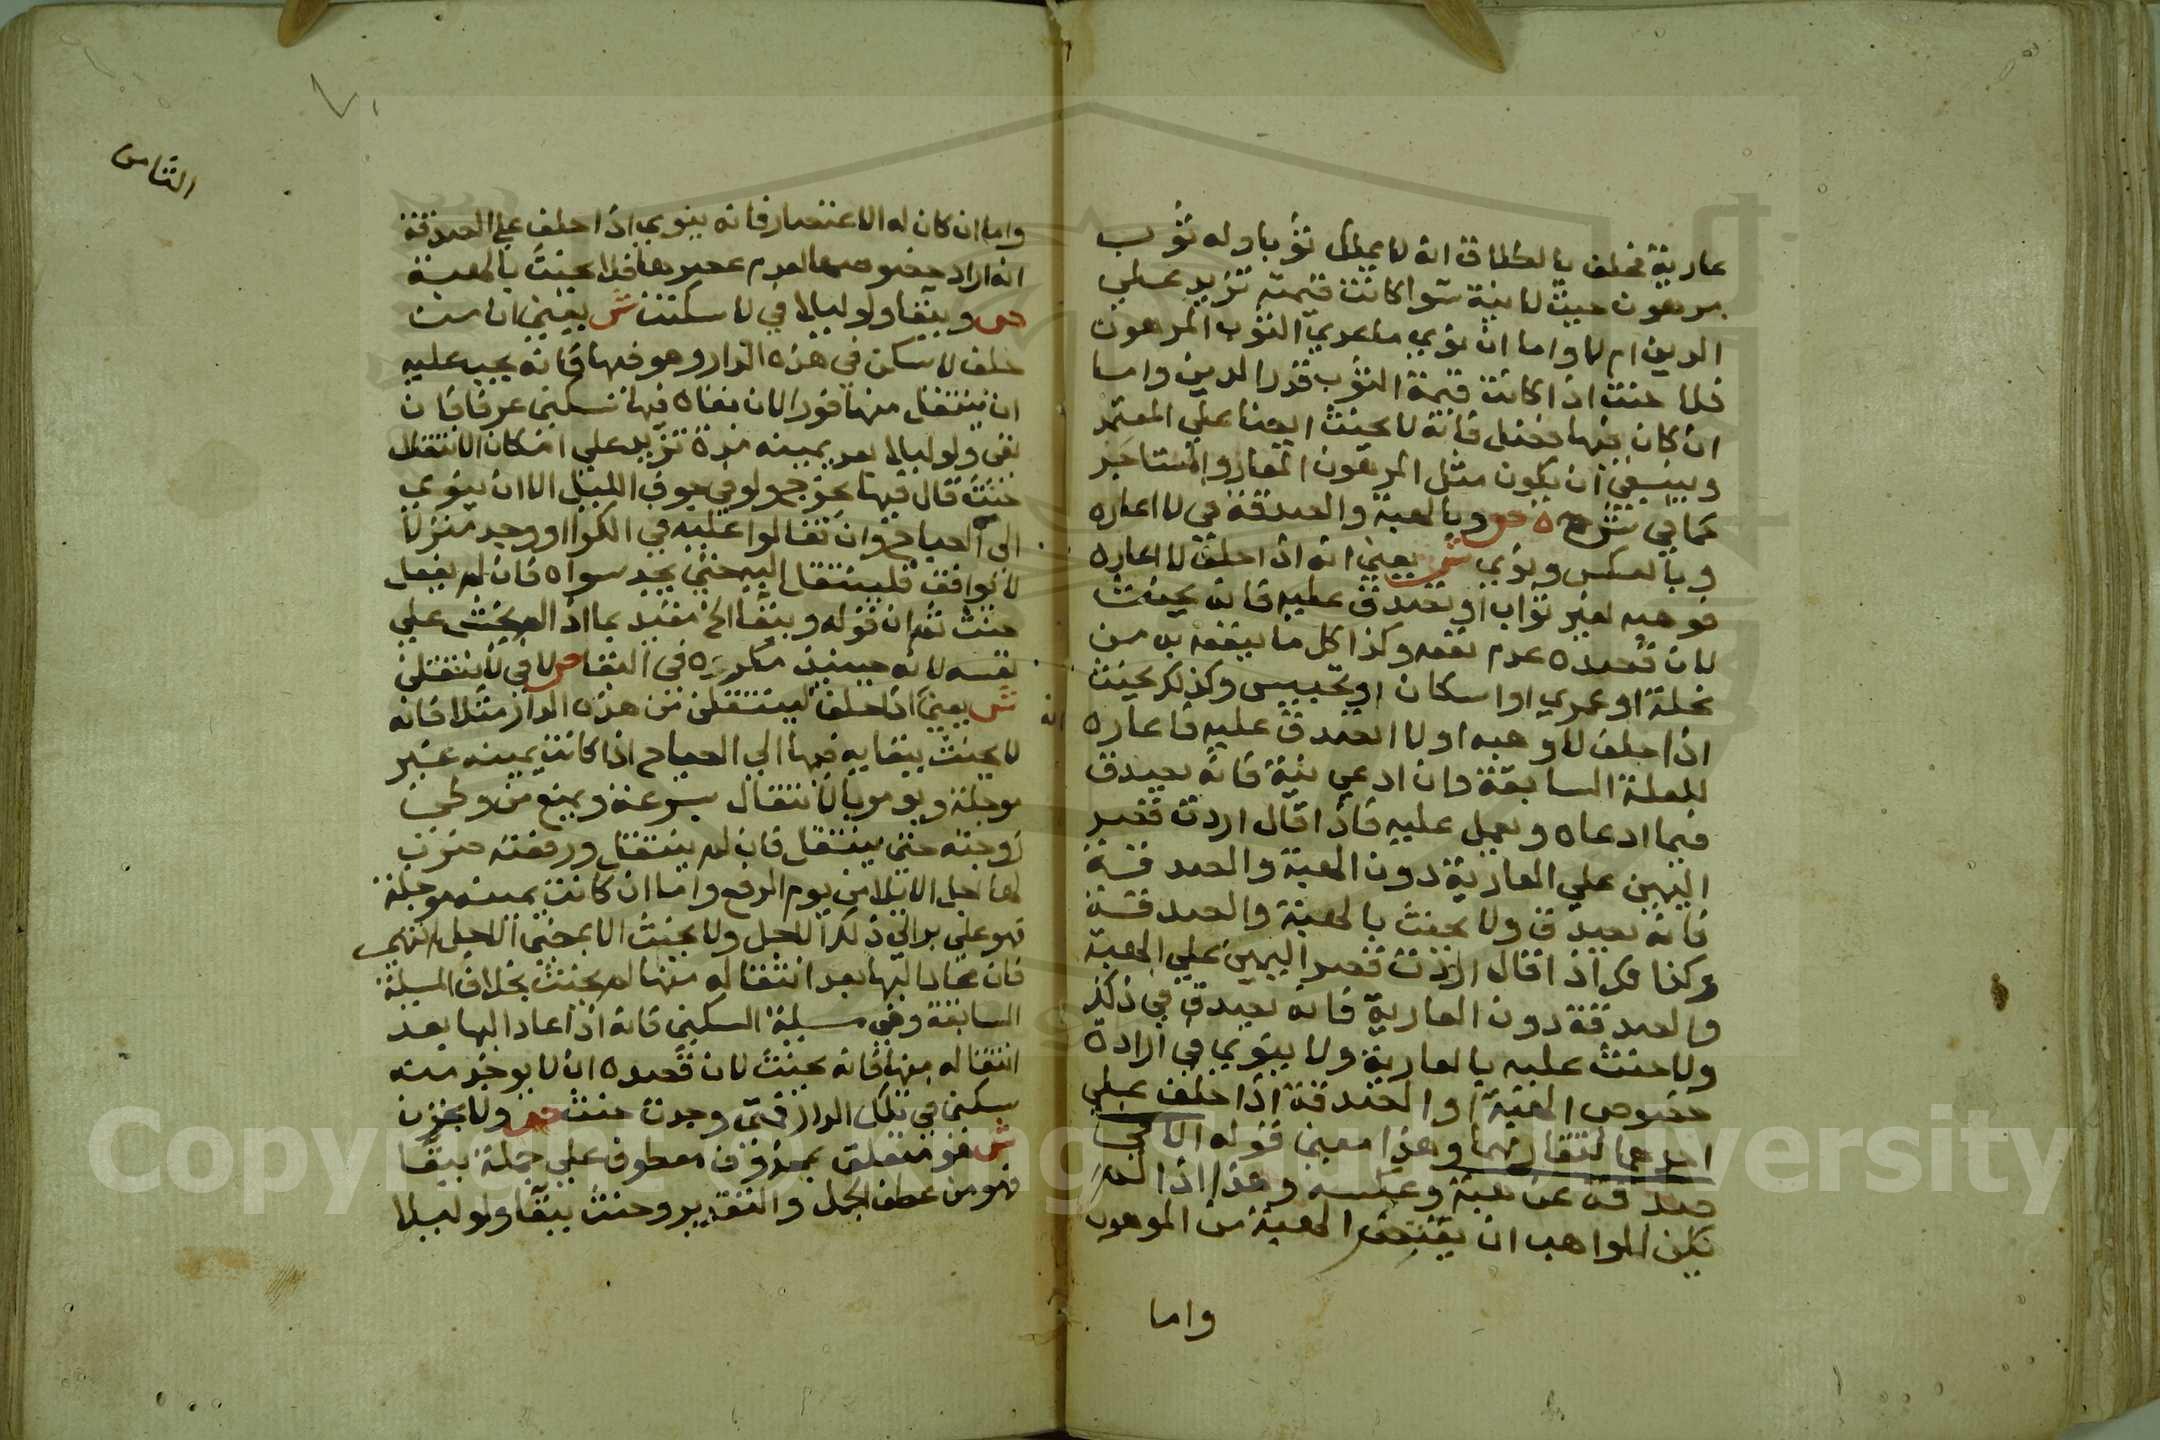 عارية فحلف بالطلاق انه لا يملك ثوبا وله ثوب
مرهون حيث لا نية سوا كانت قيمته تزيد على
الدين ام لا واما ان نوى ما عدى الثوب المرهون
فلا حنث اذا كانت قيمة الثوب قدر الدين واما
ان كان فيها فضل فانه لا يحنث ايضا على المعتمد
وينبغي ان يكون مثل المرهون المعار والمستاجر
كما في شرحه ص وبالهبة والصدقة في لا اعاره
وبالعكس ونوي ش يعني انه اذا حلف لا اعاره
فوهبه لغير ثواب او تصدق عليه فانه يحنث
لان قصده عدم نفعه وكذا كل ما ينفعه به من
نحلة او عمري او اسكان او تحبيس وكذلك يحنث
اذا حلف لا وهبه او لا تصدق عليه فاعاره
للعلة السابقة فان ادعى نية فانه يصدق
فيما ادعاه ويعمل عليه فاذا قال اردت قصر
اليمين على العارية دون الهبة والصدقة
فانه يصدق ولا يحنث بالهبة والصدقة
وكذا اذا قال اردت قصر اليمين على الهبة
والصدقة دون العارية فانه يصدق في ذلك
ولا حنث عليه بالعارية ولا ينوي في ارادة
خصوص الهبة او الصدقة اذا حلف على
احدهما لتقاربهما وهذا معنى قوله الاتي
صدقة عن هبة وعكسه وهذا اذا لم
يكن للواهب ان يعتصر الهبة من الموهوب
واما
الثامن
واما ان كان له الاعتصار فانه ينوي اذا حلف على الصدقة
انه اراد خصوصها لعدم عصيرها فلا يحنث بالهبة
ص وببقا ولو ليلا في لا سكنت ش يعني ان من
حلف لا سكن في هذه الدار وهو فيها فانه يجب عليه
ان ينتقل منها فورا لان بقاه فيها سكنى عرفا فان
بقى ولو ليلا بعد يمينه مدة تزيد على امكان الانتقال
حنث قال فيها يخرج ولو في جوف الليل الا ان ينوي
الى الصباح وان تغالوا عليه في الكرا او وجد منزلا
لا يوافقه فلينتقل اليه حتى يجد سواه فان لم يفعل
حنث ثم ان قوله وببقا الخ مقيد بما اذا لم يخش على
نفسه لانه حينئذ مكره في البقا ص لا في لانتقلن
ش يعني انه اذا حلف لينتقلن من هذه الدار مثلا فانه
لا يحنث ببقايه فيها الى الصباح اذا كانت يمينه غير
موجلة ويومر بالانتقال بسرعة ويمنع من وطئ
زوجته حتى ينتقل فان لم ينتقل ورفعته ضرب
لها اجل الايلا من يوم الرفع واما ان كانت يمينه موجلة
فهو على بر الى ذلك الاجل ولا يحنث الا بمضي الاجل انتهى
فان عاد اليها بعد انتقاله منها لم يحنث بخلاف المسيلة
السابقة وهي مسيلة السكنى فانه اذا عاد اليها بعد
انتقاله منها فانه يحنث لان قصده ان لا يوجد منه
سكنى في تلك الدار فمتى وجدت حنث ص ولا بخزن
ش هو متعلق بمحذوف معطوف على جملة ببقا
فهو من عطف الجمل والتقدير وحنث ببقا ولو ليلا